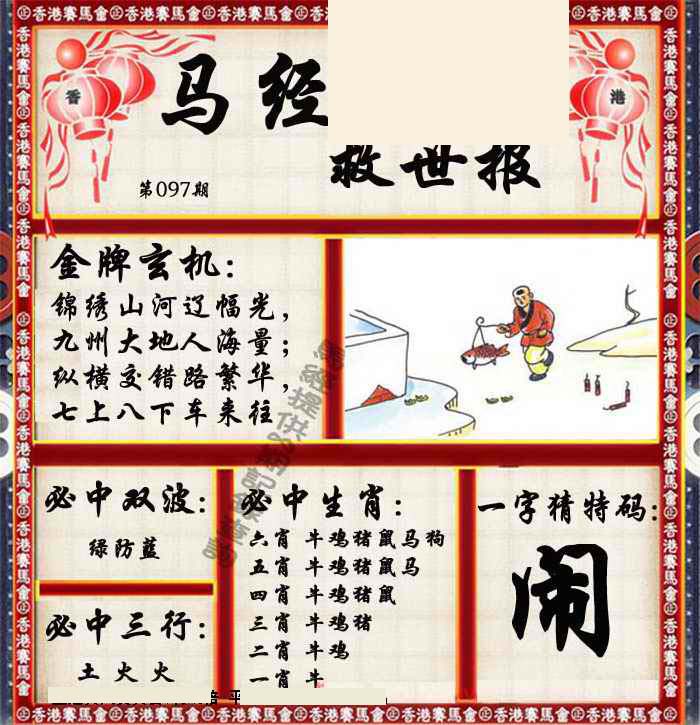 香港賽馬會
香
港
马经
救世报
第097期
金牌玄机:
锦绣山河辽幅光,
九州大地人海量;
纵横交错路繁华,
七上八下车来往
必中双波:
绿防蓝
必中三行:
土火火
必中生肖:
六肖 牛鸡猪鼠马狗
五肖 牛鸡猪鼠马
四肖 牛鸡猪鼠
三肖 牛鸡猪
二肖 牛鸡
一肖 牛
一字猜特码:
闹